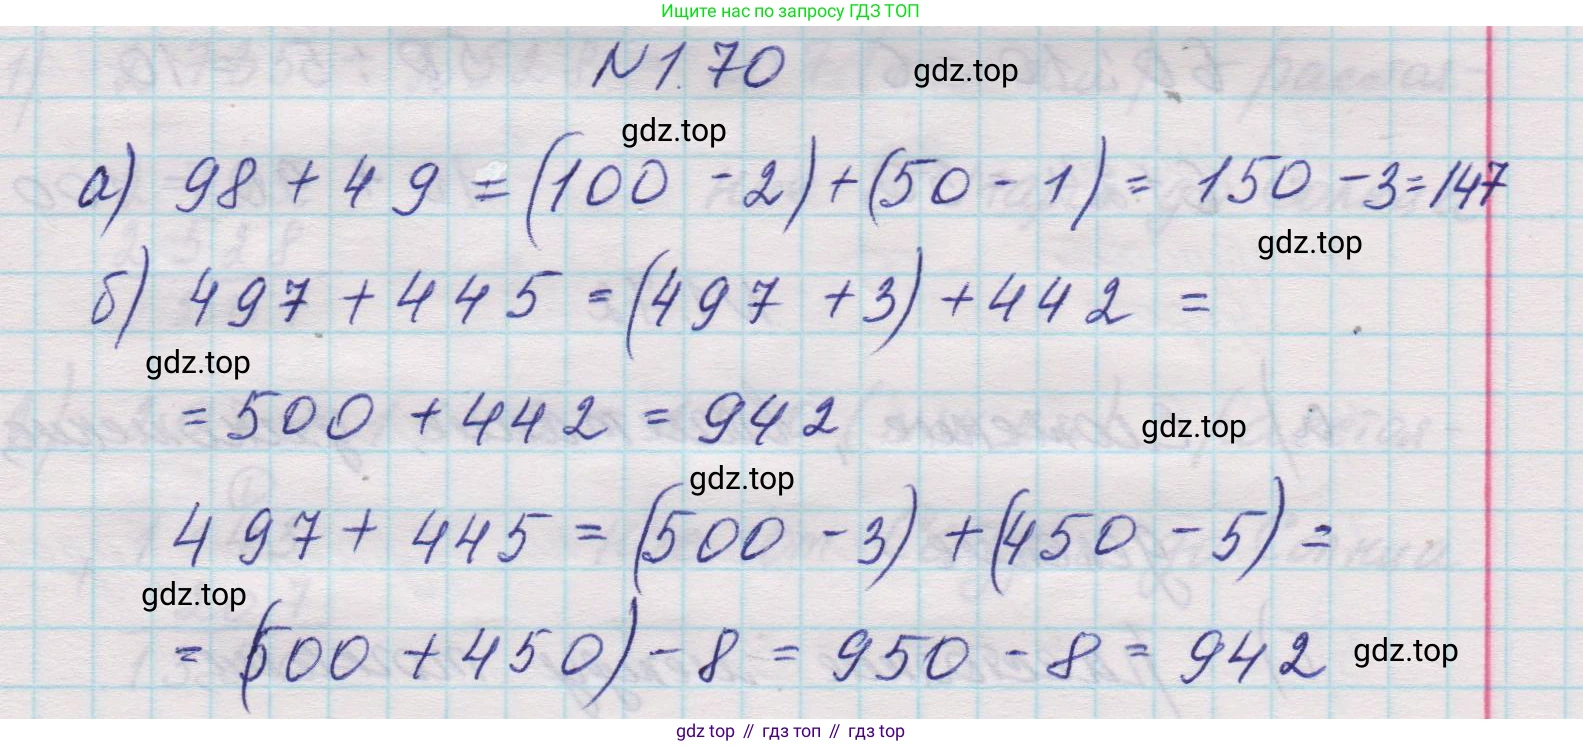 Ищите нас по запросу ГДЗ ТОП
N 1.70
gdz.top
gdz.top
а) 98 + 49 = (100 - 2) + (50 - 1) = 150 - 3 = 147
gdz.top
б) 497 + 445 = (497 + 3) + 442 =
gdz.top
= 500 + 442 = 942
gdz.top
gdz.top
497 + 445 = (500 - 3) + (450 - 5) =
gdz.top
= (500 + 450) - 8 = 950 - 8 = 942
gdz.top
gdz top // гдз топ // гдз top